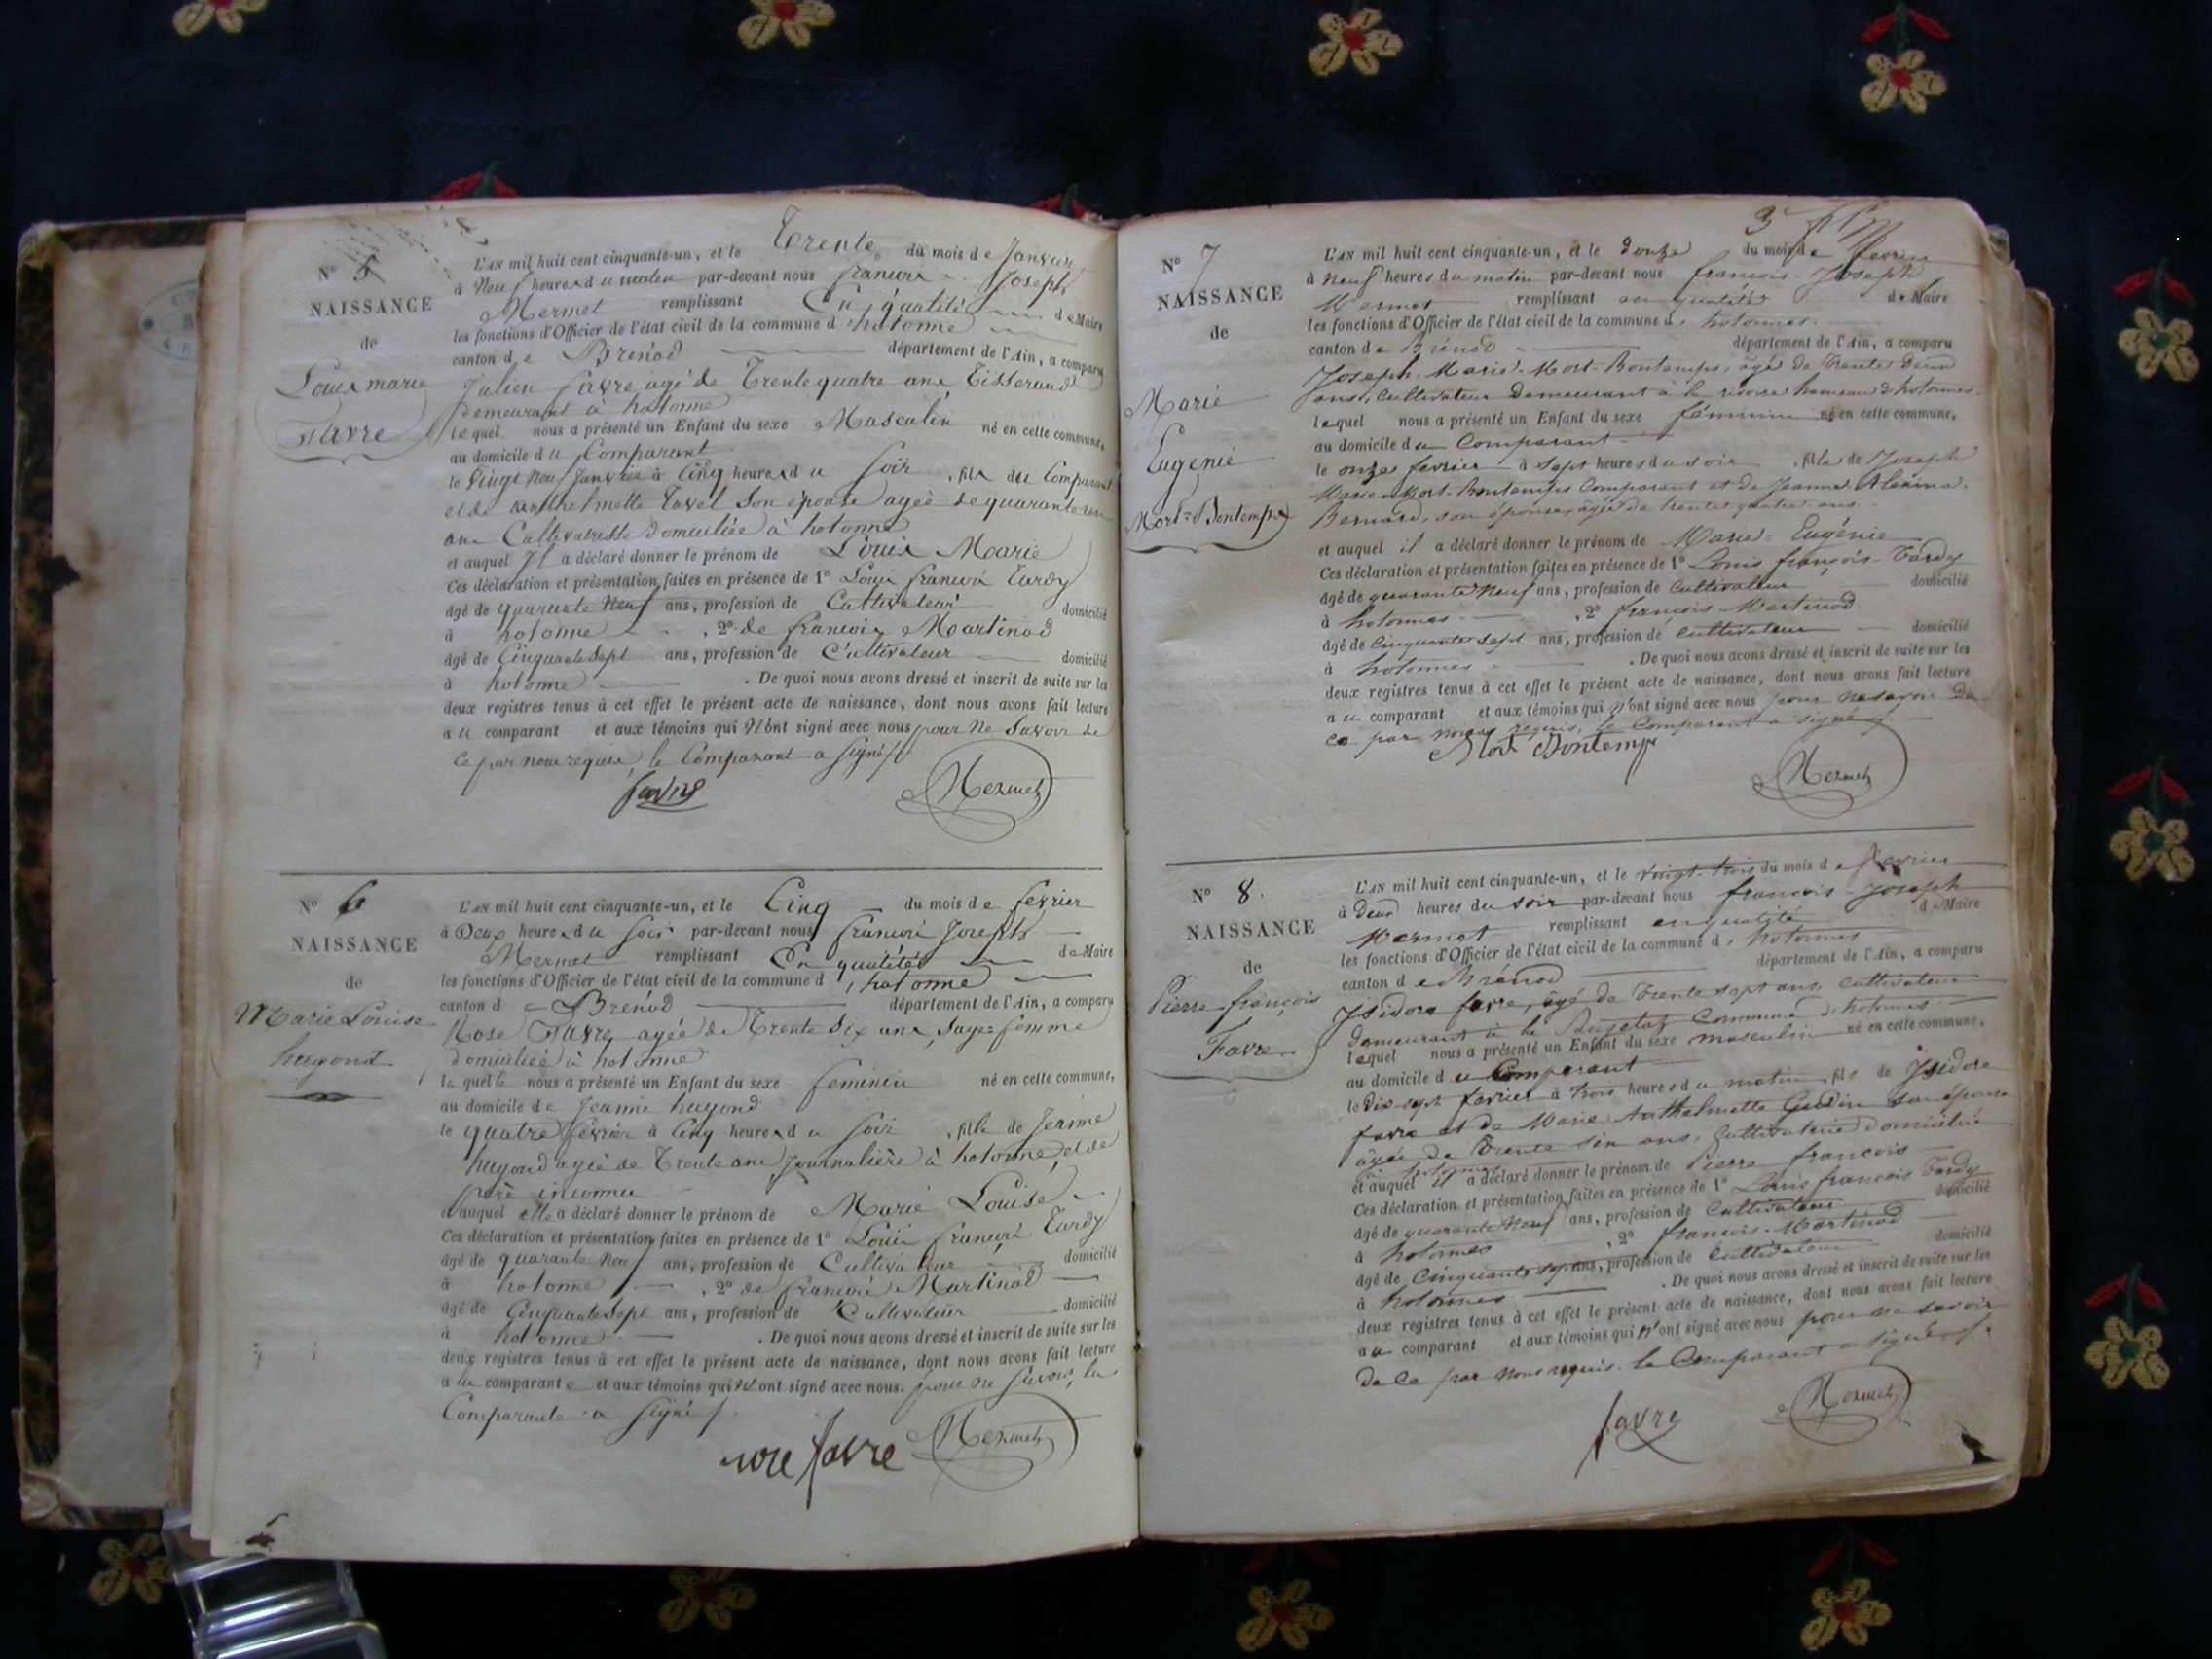 N° 5
NAISSANCE
de
Louis marie
Favre
L'AN mil huit cent cinquante-un, et le Trente du mois de Janvier
à Neuf heures du matin par-devant nous francois Joseph
Mermet remplissant En qualité de Maire
les fonctions d'Officier de l'état civil de la commune d'hotonne
canton de Brénod département de l'Ain, a comparu
Julien favre agé de Trente quatre ans Tisserand
demeurant à hotonne
lequel nous a présenté un Enfant du sexe Masculin né en cette commune,
au domicile du Comparant
le Vingt Neuf Janvier à Cinq heures du Soir, fils du Comparant
et de anthelmette Tavel Son épouse agée de quarante un
ans Cultivatrisse domiciliée à hotonne
et auquel Il a déclaré donner le prénom de Louis Marie
Ces déclaration et présentation faites en présence de 1° Louis francois Tardy
âgé de quarante Neuf ans, profession de Cultivateur domicilié
à hotonne, 2° de francois Martinod
âgé de Cinquante Sept ans, profession de Cultivateur domicilié
à hotonne. De quoi nous avons dressé et inscrit de suite sur les
deux registres tenus à cet effet le présent acte de naissance, dont nous avons fait lecture
au comparant et aux témoins qui N'ont signé avec nous pour ne Savoir de
Ce par nous requis, le Comparant a Signé
favre Mermet
N° 6
NAISSANCE
de
Marie Louise
hugond
L'AN mil huit cent cinquante-un, et le Cinq du mois de fevrier
à Deux heures du Soir par-devant nous francois Joseph
Mermet remplissant En qualité de Maire
les fonctions d'Officier de l'état civil de la commune d'hotonne
canton de Brénod département de l'Ain, a comparu
Rose Favre agée de Trente Six ans, Sage femme
domiciliée à hotonne
laquelle nous a présenté un Enfant du sexe feminin né en cette commune,
au domicile de Jeanne hugond
le quatre février à Cinq heures du Soir, fille de Jeanne
hugond agée de Trente ans Journalière à hotonne, et de
père inconnu
et auquel elle a déclaré donner le prénom de Marie Louise
Ces déclaration et présentation faites en présence de 1° Louis francois Tardy
âgé de quarante Neuf ans, profession de Cultivateur domicilié
à hotonne, 2° de francois Martinod
âgé de Cinquante Sept ans, profession de Cultivateur domicilié
à hotonne. De quoi nous avons dressé et inscrit de suite sur les
deux registres tenus à cet effet le présent acte de naissance, dont nous avons fait lecture
a la comparante et aux témoins qui N'ont signé avec nous. pour ne Savoir, la
Comparante a Signé
favre Mermet
3
N° 7
NAISSANCE
de
Marie
Eugenie
Mort-Bontemps
L'AN mil huit cent cinquante-un, et le douze du mois de fevrier
à neuf heures du matin par-devant nous francois Joseph
Mermet remplissant en qualité de Maire
les fonctions d'Officier de l'état civil de la commune d'hotonnes
canton de Brénod département de l'Ain, a comparu
Joseph Marie Mort-Bontemps, âgé de trente deux
ans, cultivateur demeurant à la hameau d'hotonnes
lequel nous a présenté un Enfant du sexe féminin né en cette commune,
au domicile du Comparant
le onze fevrier à sept heures du soir, fille de Joseph
Marie Mort-Bontemps Comparant et de Jeanne Alexina
Bernard, son épouse, âgée de trente quatre ans
et auquel il a déclaré donner le prénom de Marie Eugénie
Ces déclaration et présentation faites en présence de 1° Louis françois Tardy
âgé de quarante neuf ans, profession de cultivateur domicilié
à hotonnes, 2° françois Martinod
âgé de cinquante sept ans, profession de cultivateur domicilié
à hotonnes. De quoi nous avons dressé et inscrit de suite sur les
deux registres tenus à cet effet le présent acte de naissance, dont nous avons fait lecture
au comparant et aux témoins qui n'ont signé avec nous pour ne savoir de
ce par nous requis, le Comparant a signé
Mort Bontemps Mermet
N° 8.
NAISSANCE
de
Pierre françois
Favre
L'AN mil huit cent cinquante-un, et le vingt-trois du mois de fevrier
à deux heures du soir par-devant nous francois Joseph
Mermet remplissant en qualité de Maire
les fonctions d'Officier de l'état civil de la commune d'hotonnes
canton de Brénod département de l'Ain, a comparu
Isidore favre, âgé de trente sept ans, cultivateur
demeurant à la commune d'hotonnes
lequel nous a présenté un Enfant du sexe masculin né en cette commune,
au domicile du Comparant
le dix sept fevrier à trois heures du matin, fils de Isidore
favre et de Marie Anthelmette Gudin son épouse
âgée de trente six ans, Cultivatrice domiciliée
à hotonnes
et auquel il a déclaré donner le prénom de Pierre francois
Ces déclaration et présentation faites en présence de 1° Louis francois Tardy
âgé de quarante neuf ans, profession de Cultivateur domicilié
à hotonnes, 2° francois Martinod
âgé de Cinquante sept ans, profession de Cultivateur domicilié
à hotonnes. De quoi nous avons dressé et inscrit de suite sur les
deux registres tenus à cet effet le présent acte de naissance, dont nous avons fait lecture
au comparant et aux témoins qui n'ont signé avec nous pour ne savoir
de ce par nous requis. le Comparant a signé
favre Mermet